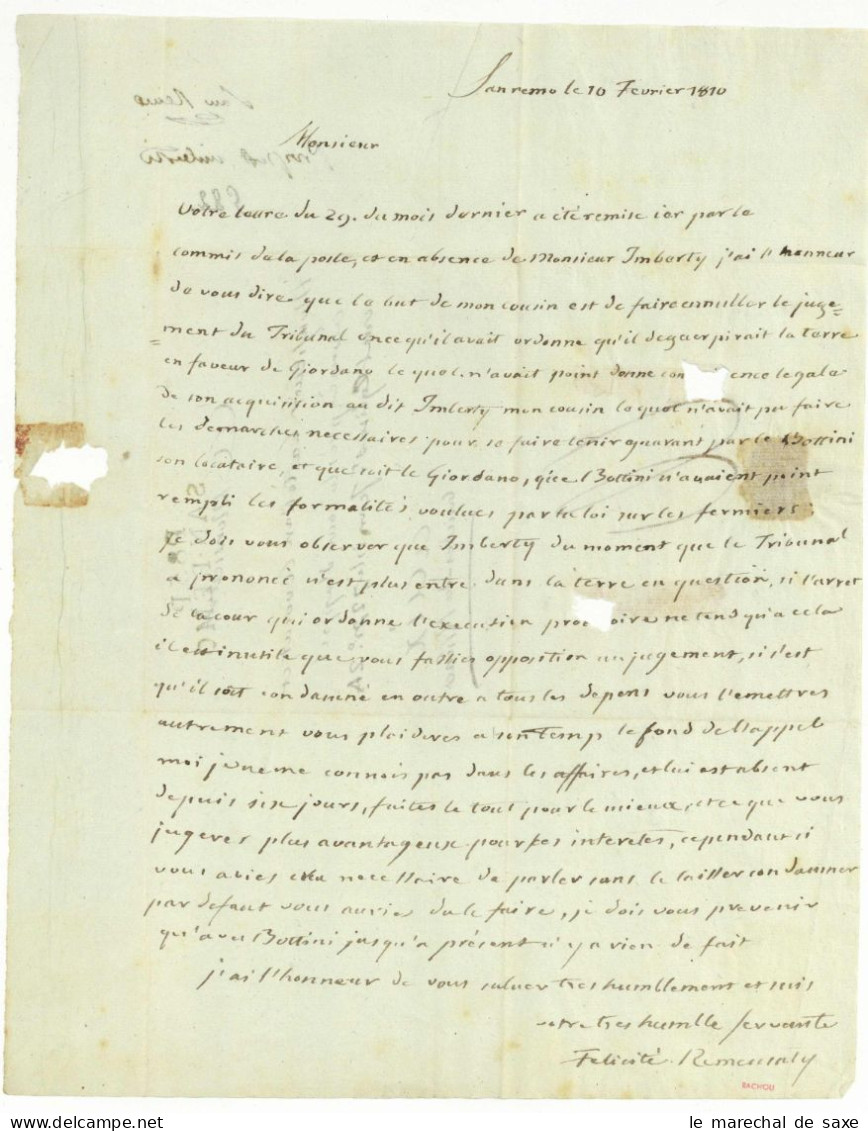 Sanremo le 10 Fevrier 1810
Monsieur
Votre lettre du 29. du mois dernier a été remise ier par le
commis de la poste, et en absence de Monsieur Imberty j'ai l'honneur
de vous dire que le but de mon cousin est de faire annuller le juge=
=ment du Tribunal once qu'il avait ordonne qu'il deguerpirait la terre
en faveur de Giordano le quel n'avait point donne con ence legale
de son acquisition au dit Imberty mon cousin le quel n'avait pu faire
les demarches necessaires pour se faire tenir guarant par le Bottini
son locataire, et que soit le Giordano, que Bottini n'avaient point
rempli les formalités voulues par la loi sur les fermiers:
Je dois vous observer que Imberty du moment que le Tribunal
a prononcé n'est plus entre dans la terre en question, si l'arret
de la cour qui ordonne l'execution pro oire ne tend qu'a cela
il est inutile que vous fassies opposition au jugement, si s'est
qu'il soit condamné en outre a tous les depens vous l'emettres
autrement vous plaideres a son temp le fond de l'appel
moi je ne me connois pas dans les affaires, et lui est absent
depuis six jours, faites le tout pour le mieux, et ce que vous
jugeres plus avantageux pour ses interetes, cependant si
vous avies cru necessaire de parler sans le laisser condamner
par defaut vous auries du le faire, je dois vous prevenir
qu'avec Bottini jusqu'a présent il y a rien de fait
j'ai l'honneur de vous saluer tres humblement et suis
votre tres humble servante
Felicité
BACHOLI
le marechal de saxe